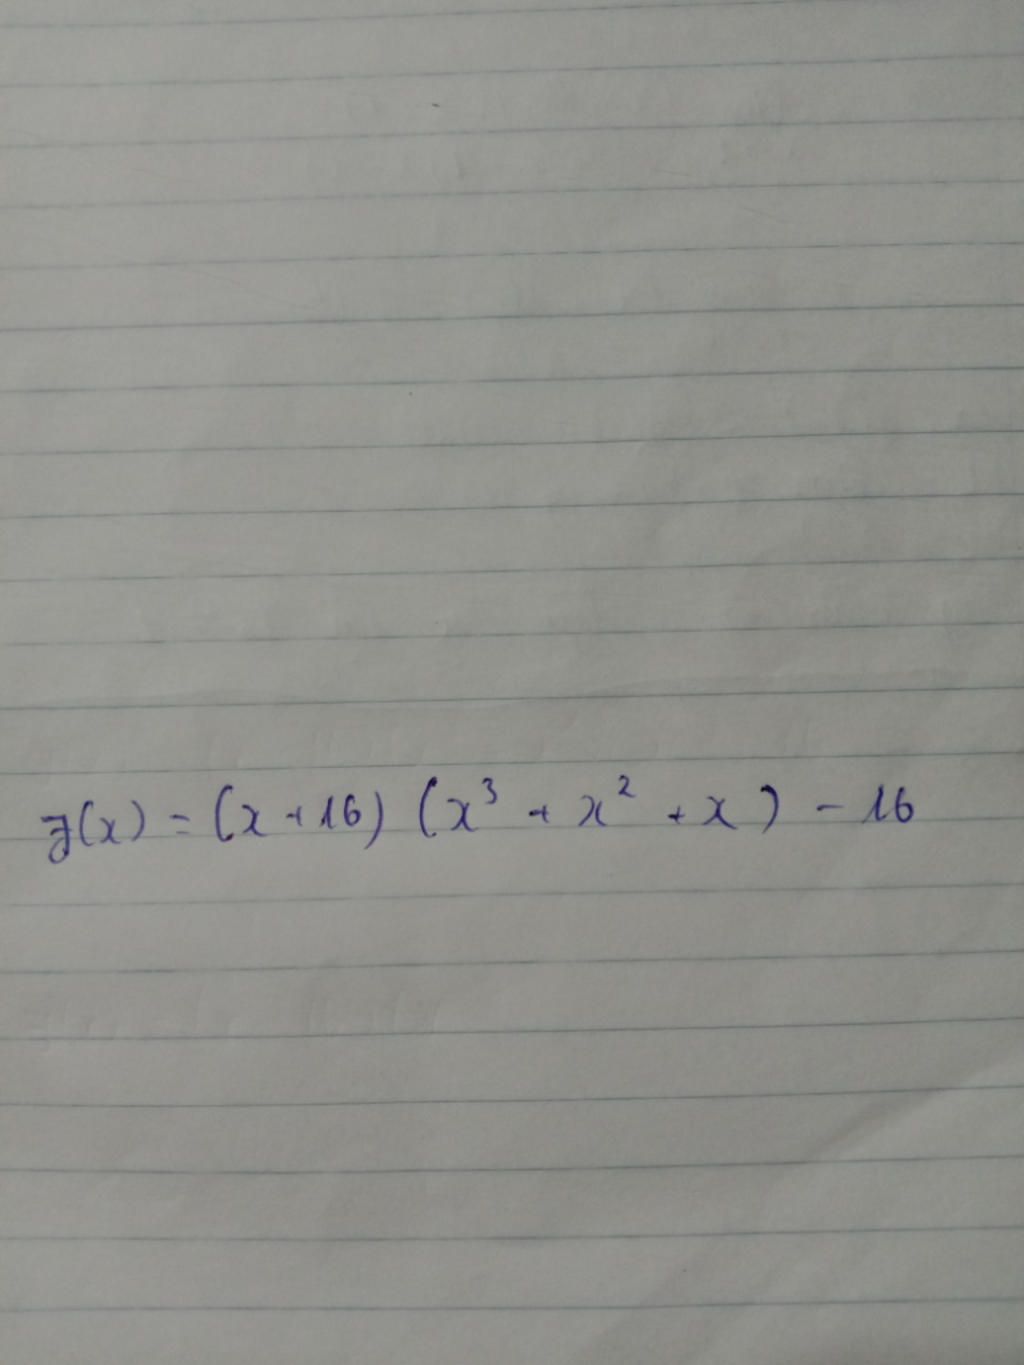 z(x) = (x + 16) (x³ + x² + x) - 16